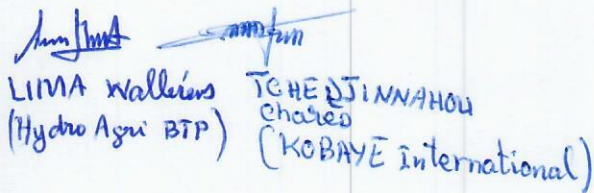 LIMA Walliens
(Hydro Agri BTP)
TCHEDJINNAHOU
Chareo
(KOBAYE International)